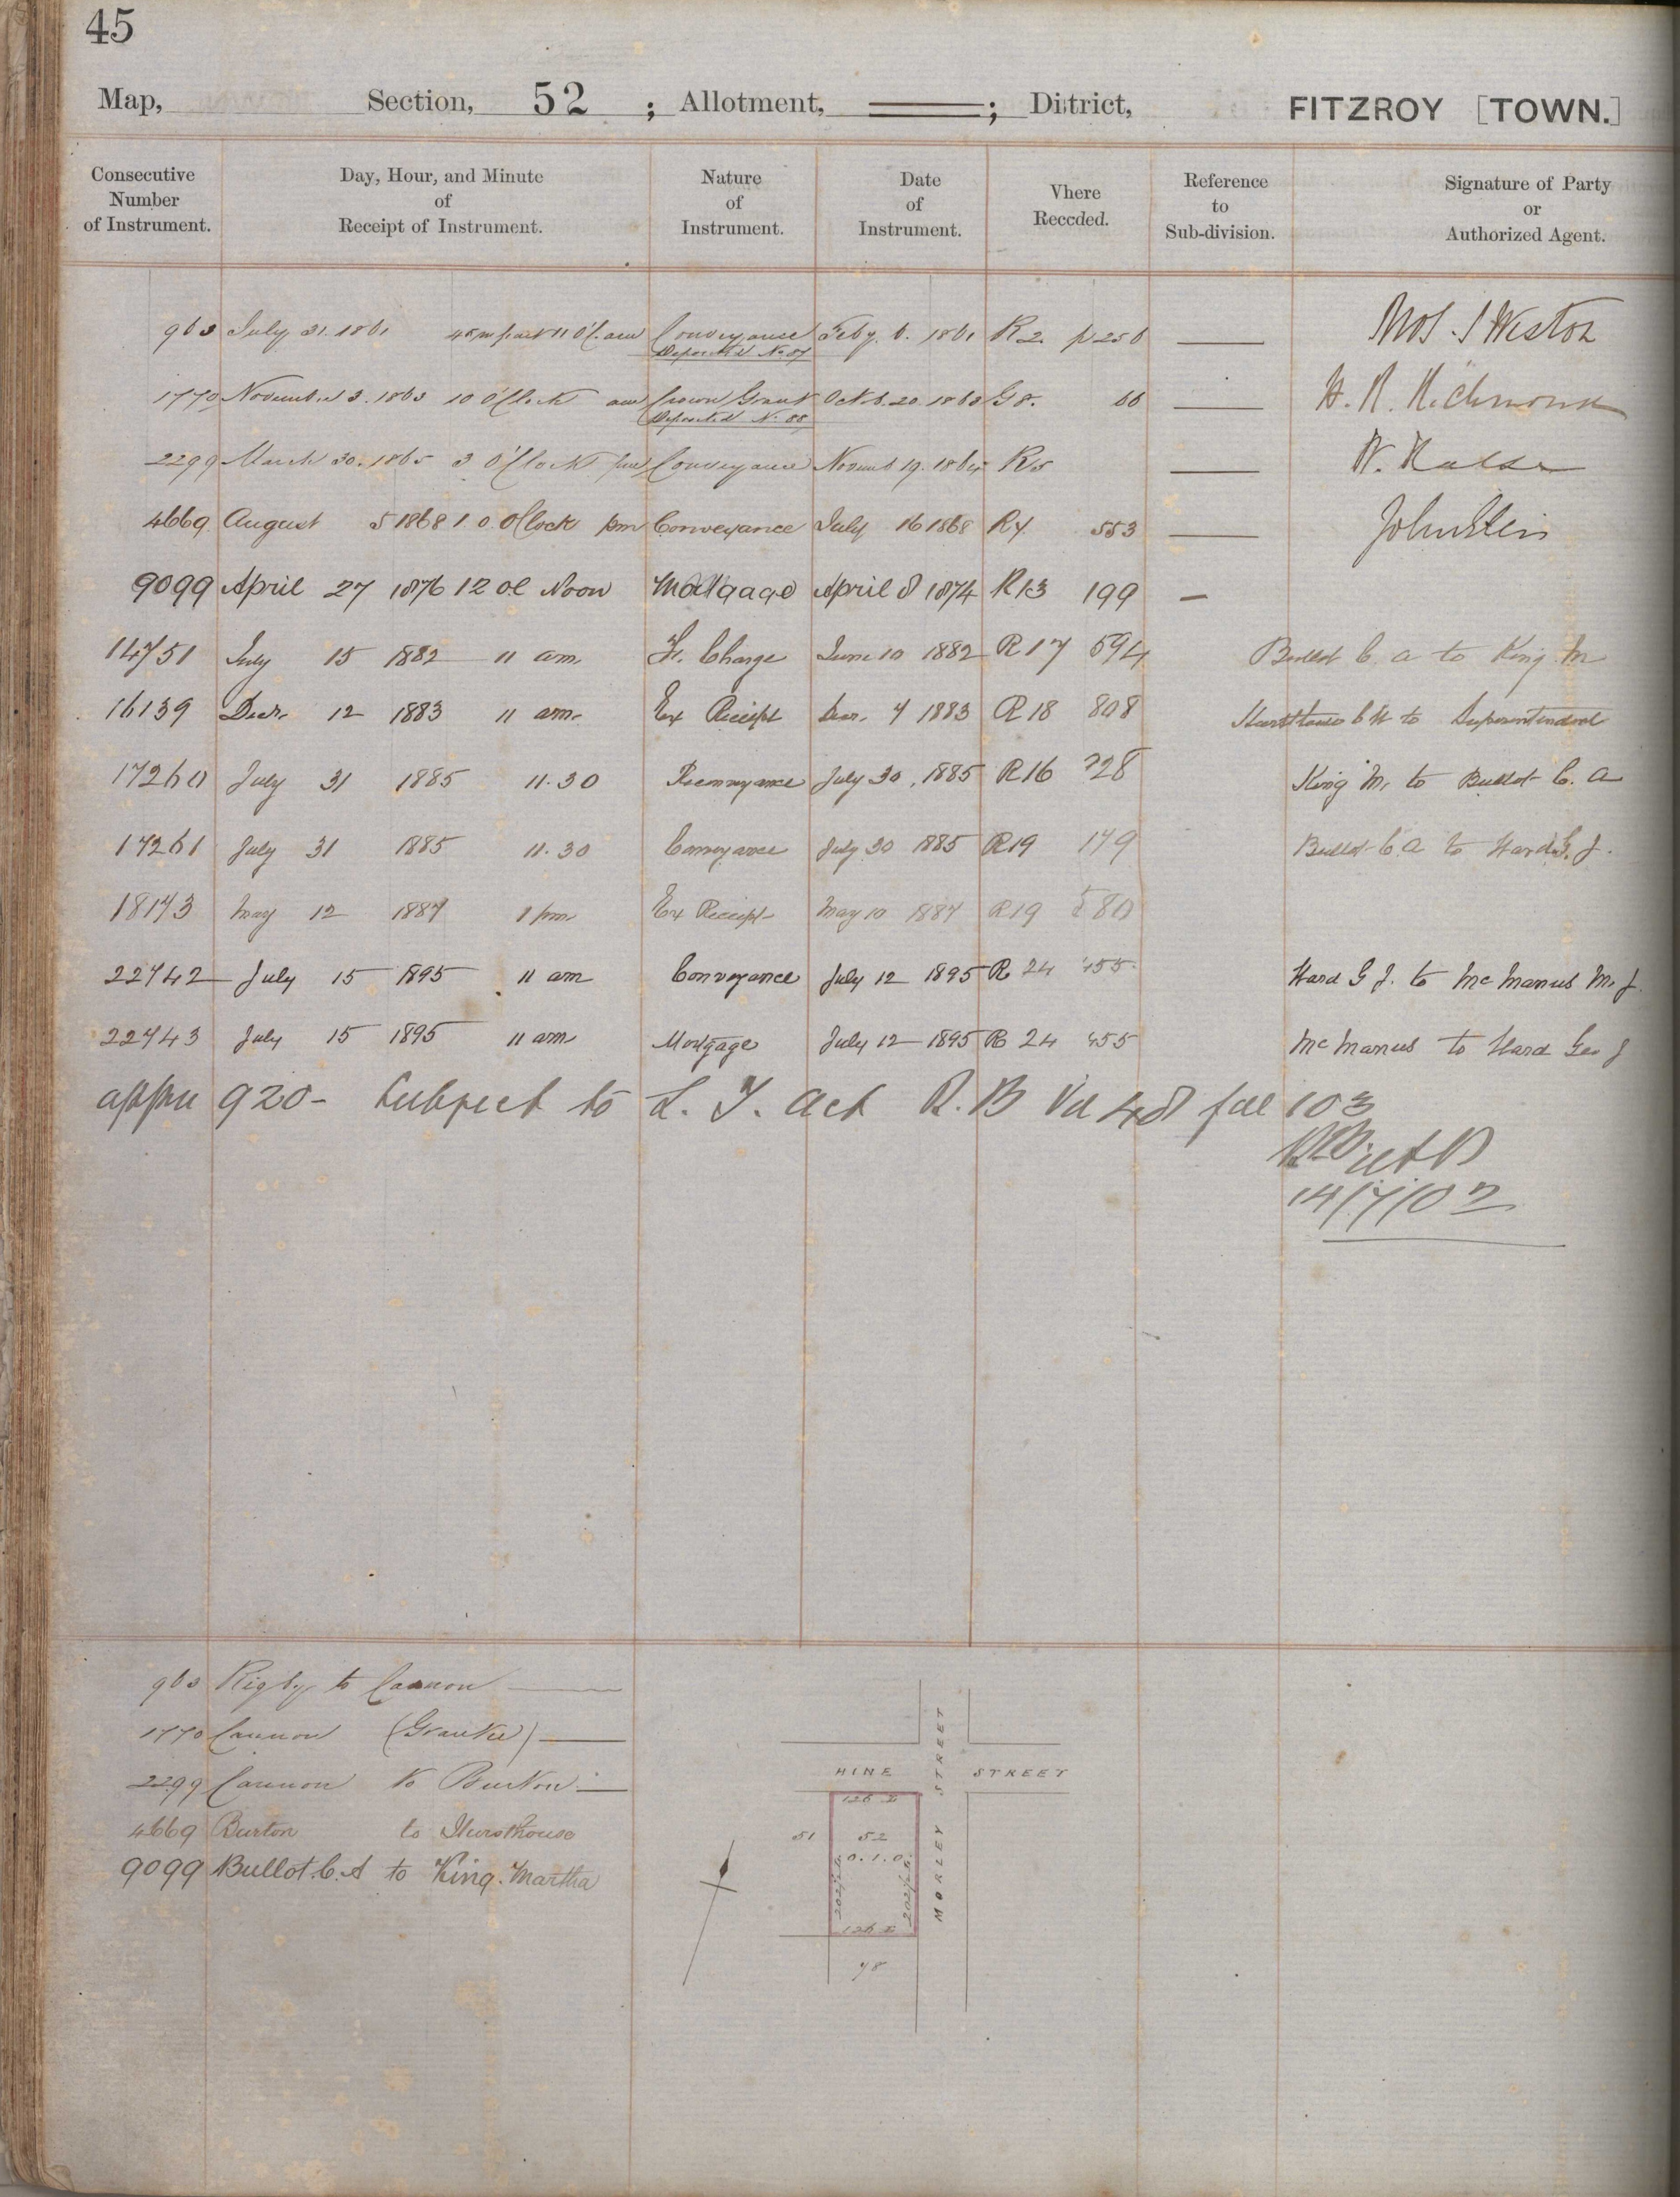 45
Map, Section, 52 ; Allotment, ; District, FITZROY [TOWN.]
Consecutive Number of Instrument. Day, Hour, and Minute of Receipt of Instrument. Nature of Instrument. Date of Instrument. Where Recorded. Reference to Sub-division. Signature of Party or Authorized Agent.
963 July 31. 1861 45 m past 11 O'C. am Conveyance Feby. 6. 1861 R2. p256 Weston
Deposited No. 87
1770 November 3. 1863 10 O'Clock am Crown Grant Octob. 20. 1863 G8. 66 H. R. Richmond
Deposited No. 88
2299 March 30. 1865 3 O'Clock pm Conveyance Novemb 19. 1864 R5 W. Halse
4669 August 5 1868 1. 0. O'Clock pm Conveyance July 16 1868 R7. 553 John Stein
9099 April 27 1876 12 OC Noon Mortgage April 8 1874 R13 199 –
14751 July 15 1882 11 am F. Charge June 10 1882 R17 594 Bullot C. A to King M
16139 Decr. 12 1883 11 am Ex Receipt Decr. 4 1883 R18 808 Hursthouse C W to Superintendent
17260 July 31 1885 11.30 Reconveyance July 30, 1885 R16 728 King M. to Bullot C. A
17261 July 31 1885 11.30 Conveyance July 30 1885 R19 179 Bullot C. A to Hard G. J.
18173 May 12 1887 1 pm Ex Receipt May 10 1887 R19 580
22742 July 15 1895 11 am Conveyance July 12 1895 R 24 455 Hard G J. to McManus M. J.
22743 July 15 1895 11 am Mortgage July 12 1895 R 24 455 McManus to Hard Geo J
appn 920 - Subject to L. T. Act R. B Vol 48 fol 103
14/7/02
963 Rigby to Cannon
1770 Cannon (Grantee)
2299 Cannon to Burton
4669 Burton to Hursthouse
9099 Bullot. C. A to King. Martha
HINE STREET
MORLEY STREET
126 L
51 52
0. 1. 0.
126 L
78